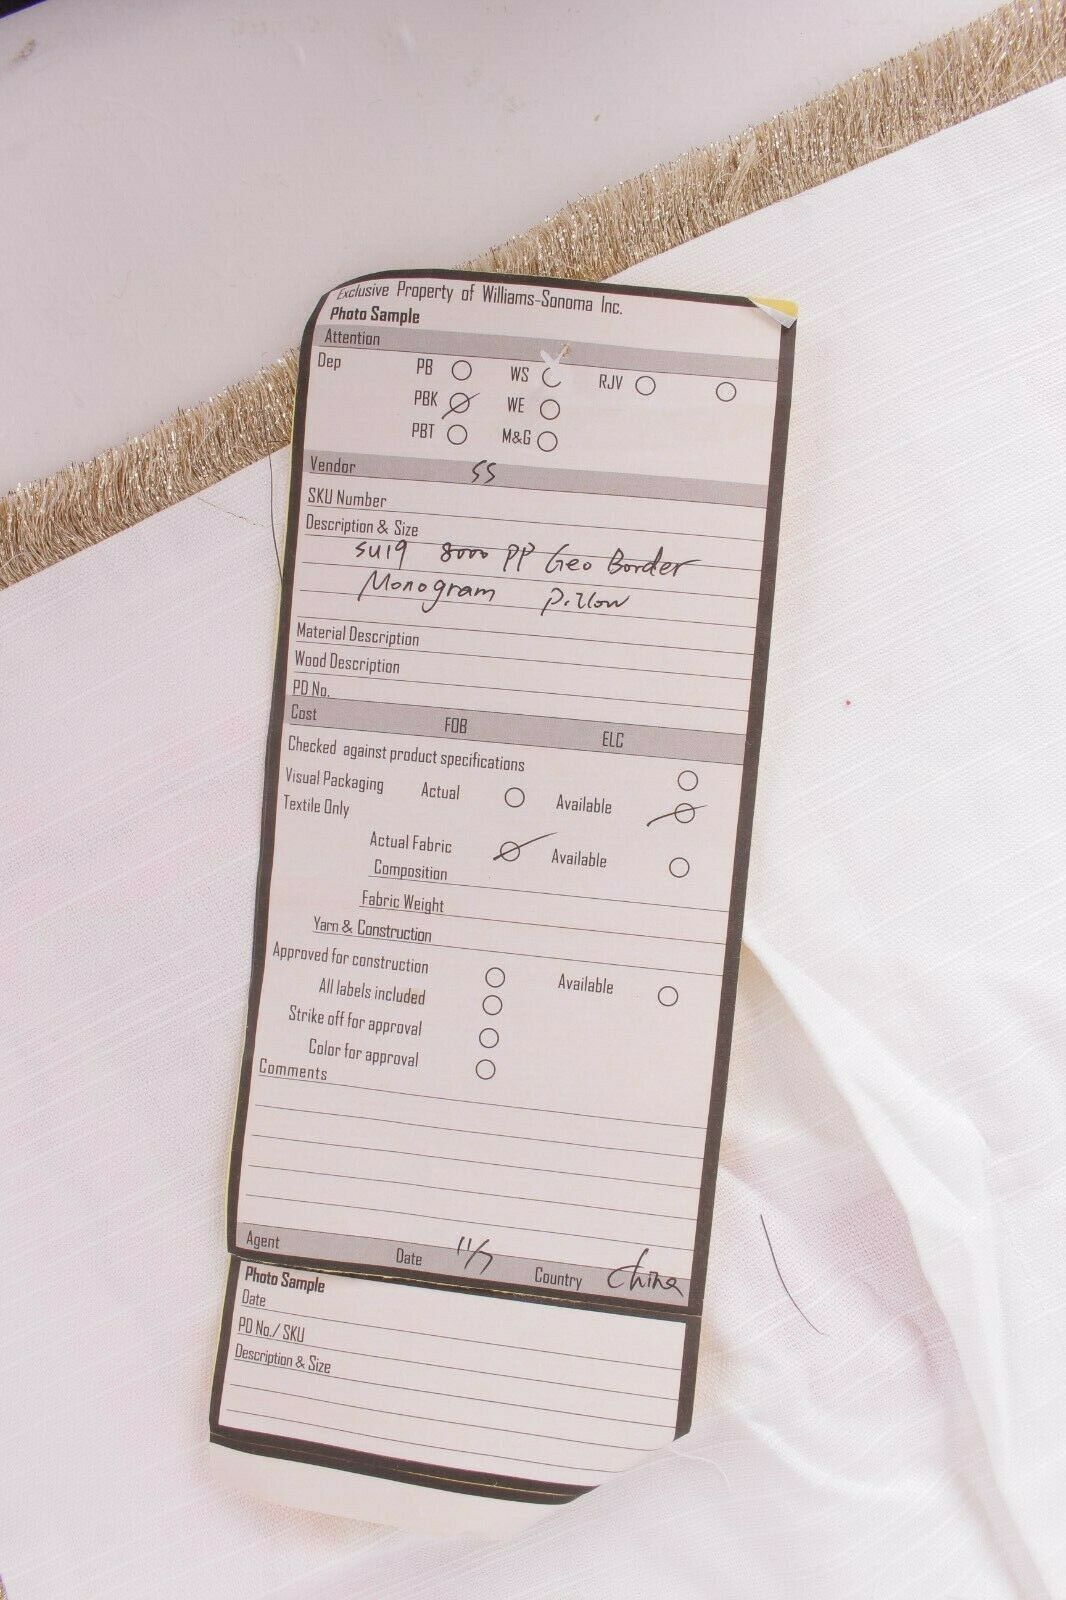 Exclusive Property of Williams-Sonoma Inc.
Photo Sample
Attention
Dep PB WS RJV
PBK WE
PBT M&G
Vendor SS
SKU Number
Description & Size
SU19 8000 PP Geo Border
Monogram Pillow
Material Description
Wood Description
PD No.
Cost FOB ELC
Checked against product specifications
Visual Packaging Actual Available
Textile Only
Actual Fabric Available
Composition
Fabric Weight
Yarn & Construction
Approved for construction Available
All labels included
Strike off for approval
Color for approval
Comments
Agent Date 11/7 Country China
Photo Sample
Date
PD No./ SKU
Description & Size